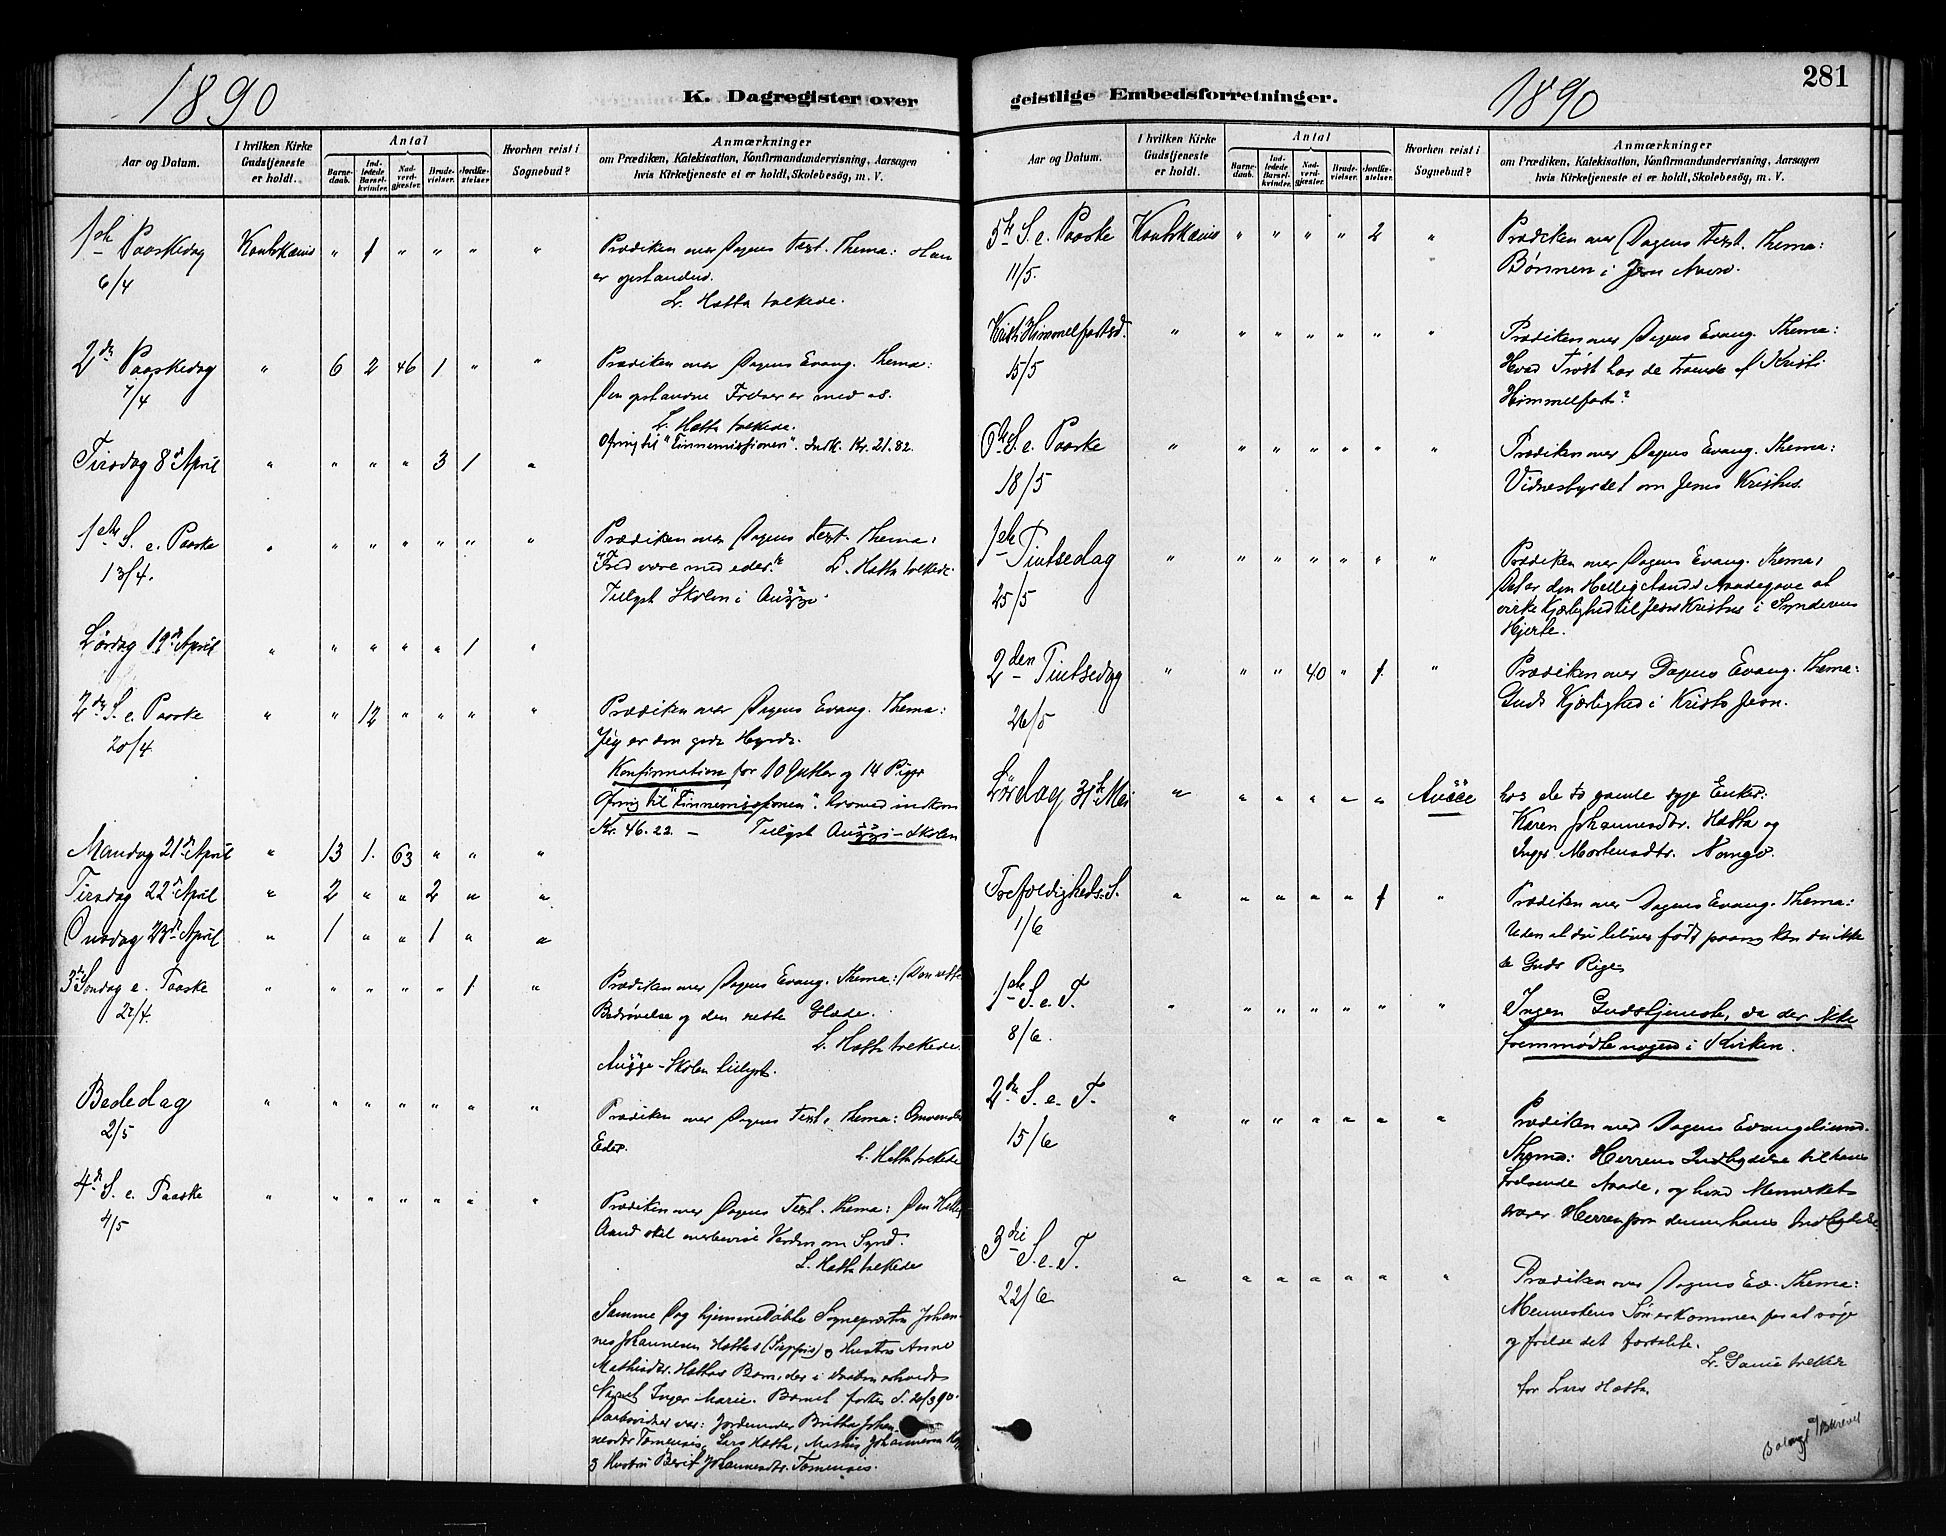 1890
K. Dagregister over
Aar og Datum.
I hvilken Kirke Gudstjeneste er holdt.
Antal
Barnedaab.
Indledede Barselkvinder.
Nadverdgjæster.
Brudevielser.
Jordfæstelser
Hvorhen reist i Sognebud?
Anmærkninger
om Prædiken, Katekisation, Konfirmandundervisning, Aarsagen
hvis Kirketjeneste ei er holdt, Skolebesög, m. V.
1ste Paaskedag Kautokeino " 1 " " " " Prædiken over Dagens Text. Thema: Han
6/4 er opstanden.
L. Hætta tolkede.
2den Paaskedag " 6 2 46 1 " " Prædiken over Dagens Evang. Thema:
7/4 Den opstandne Frelser er med os.
L. Hætta tolkede.
Ofring til "Finnemissionen". Indk. Kr. 21.82.
Tirsdag 8de April " " " " 3 1 "
1ste S. e. Paaske " " " " " " " Prædiken over Dagens Text. Thema:
13/4. "Fred være med eder." L. Hætta tolkede.
Tilsyst Skolen i
Lørdag 19de April " " " " " 1 "
2den S. e. Paaske " " 12 " " " " Prædiken over Dagens Evang. Thema:
20/4 Jeg er den gode Hyrde.
Konfirmation for 10 Gutter og 14 Piger
Ofring til "Finnemissionen", hvorved indkom
Kr. 46.22. — Tilsyst Skolen
Mandag 21de April " 13 1. 63 " " "
Tirsdag 22de April " 2 " " 2 " "
Onsdag 23de April " 1 " " 1 " "
3die Søndag e. Paaske " " " " " 1 " Prædiken over Dagens Evang. Thema: Den rette
27/4. Bedrøvelse og den rette Glæde.
L. Hætta tolkede.
Skolen tilsyst.
Bededag " " " " " " " Prædiken over Dagens Text, Thema: Omvender
2/5 Eder.
L. Hætta tolkede
4de S. e. Paaske " " " " " " " Prædiken over Dagens Text. Thema: Den Hellig
4/5 Aand skal overbevise Verden om Synd.
L. Hætta tolkede
Samme Dag hjemmedøbte Sognepræsten Johan-
nes Johannesen Hættas og Hustru Anne
Mathisdtr. Hættas Barn, der i Daaben erholdt
Navnet Inger Marie. Barnet født d. 20/3 90.
Daabsvidner var: Jordemoder Britha Johan-
nesdtr Tornensis, Lars Hætta, Johannesen
& Hustru Berit Johannesdtr. Tornensis.
geistlige Embedsforretninger.
1890
281
Aar og Datum.
I hvilken Kirke Gudstjeneste er holdt.
Antal
Barnedaab.
Indledede Barselkvinder.
Nadverdgjæster.
Brudevielser.
Jordfæstelser
Hvorhen reist i Sognebud?
Anmærkninger
om Prædiken, Katekisation, Konfirmandundervisning, Aarsagen
hvis Kirketjeneste ei er holdt, Skolebesög, m. V.
5te S. e. Paaske Kautokeino " " " " 2 " Prædiken over Dagens Text. Thema:
11/5. Bønnen i Jesu Navn.
Kristi Himmelfartsd. " " " " " " " Prædiken over Dagens Evang. Thema:
15/5 Hvad Trøst har de troende af Kristi
Himmelfart?
6te S. e. Paaske " " " " " " " Prædiken over Dagens Evang. Thema:
18/5 Vidnesbyrdet om Jesus Kristus.
1ste Pintsedag " " " " " " " Prædiken over Dagens Evang. Thema:
25/5 Det er den Hellig Aands Naadegave at
virke Kjærlighed til Jesus Kristus i Synderens
Hjerte.
2den Pintsedag " " " 40 " 1. " Prædiken over Dagens Evang. Thema:
26/5 Guds Kjærlighed i Kristo Jesu.
Lørdag 31te Mai " " " " " " hos de to gamle syge Enker:
Karen Johannesdtr. Hætta og
Inger Mortensdtr. Nango.
Trefoldigheds. S. " " " " " 1 " Prædiken over Dagens Evang. Thema:
1/6 Uden at du bliver født paany kan du ikke
se Guds Rige.
1ste S. e. T. " " " " " " " Ingen Gudstjeneste, da der ikke
8/6. fremmødte nogen i Kirken.
2den S. e. T. " " " " " " " Prædiken over Dagens Evangelium.
15/6 Thema: Herrens Indbydelse til hans
frelsende Naade, og hvad Mennesket
svarer Herren paa denne hans Indbydelse
3die S. e. T. " " " " " " " Prædiken over Dagens Ev. Thema:
22/6 Menneskens Søn er kommen for at søge
og frelse det fortabte.
for Lars Hætta